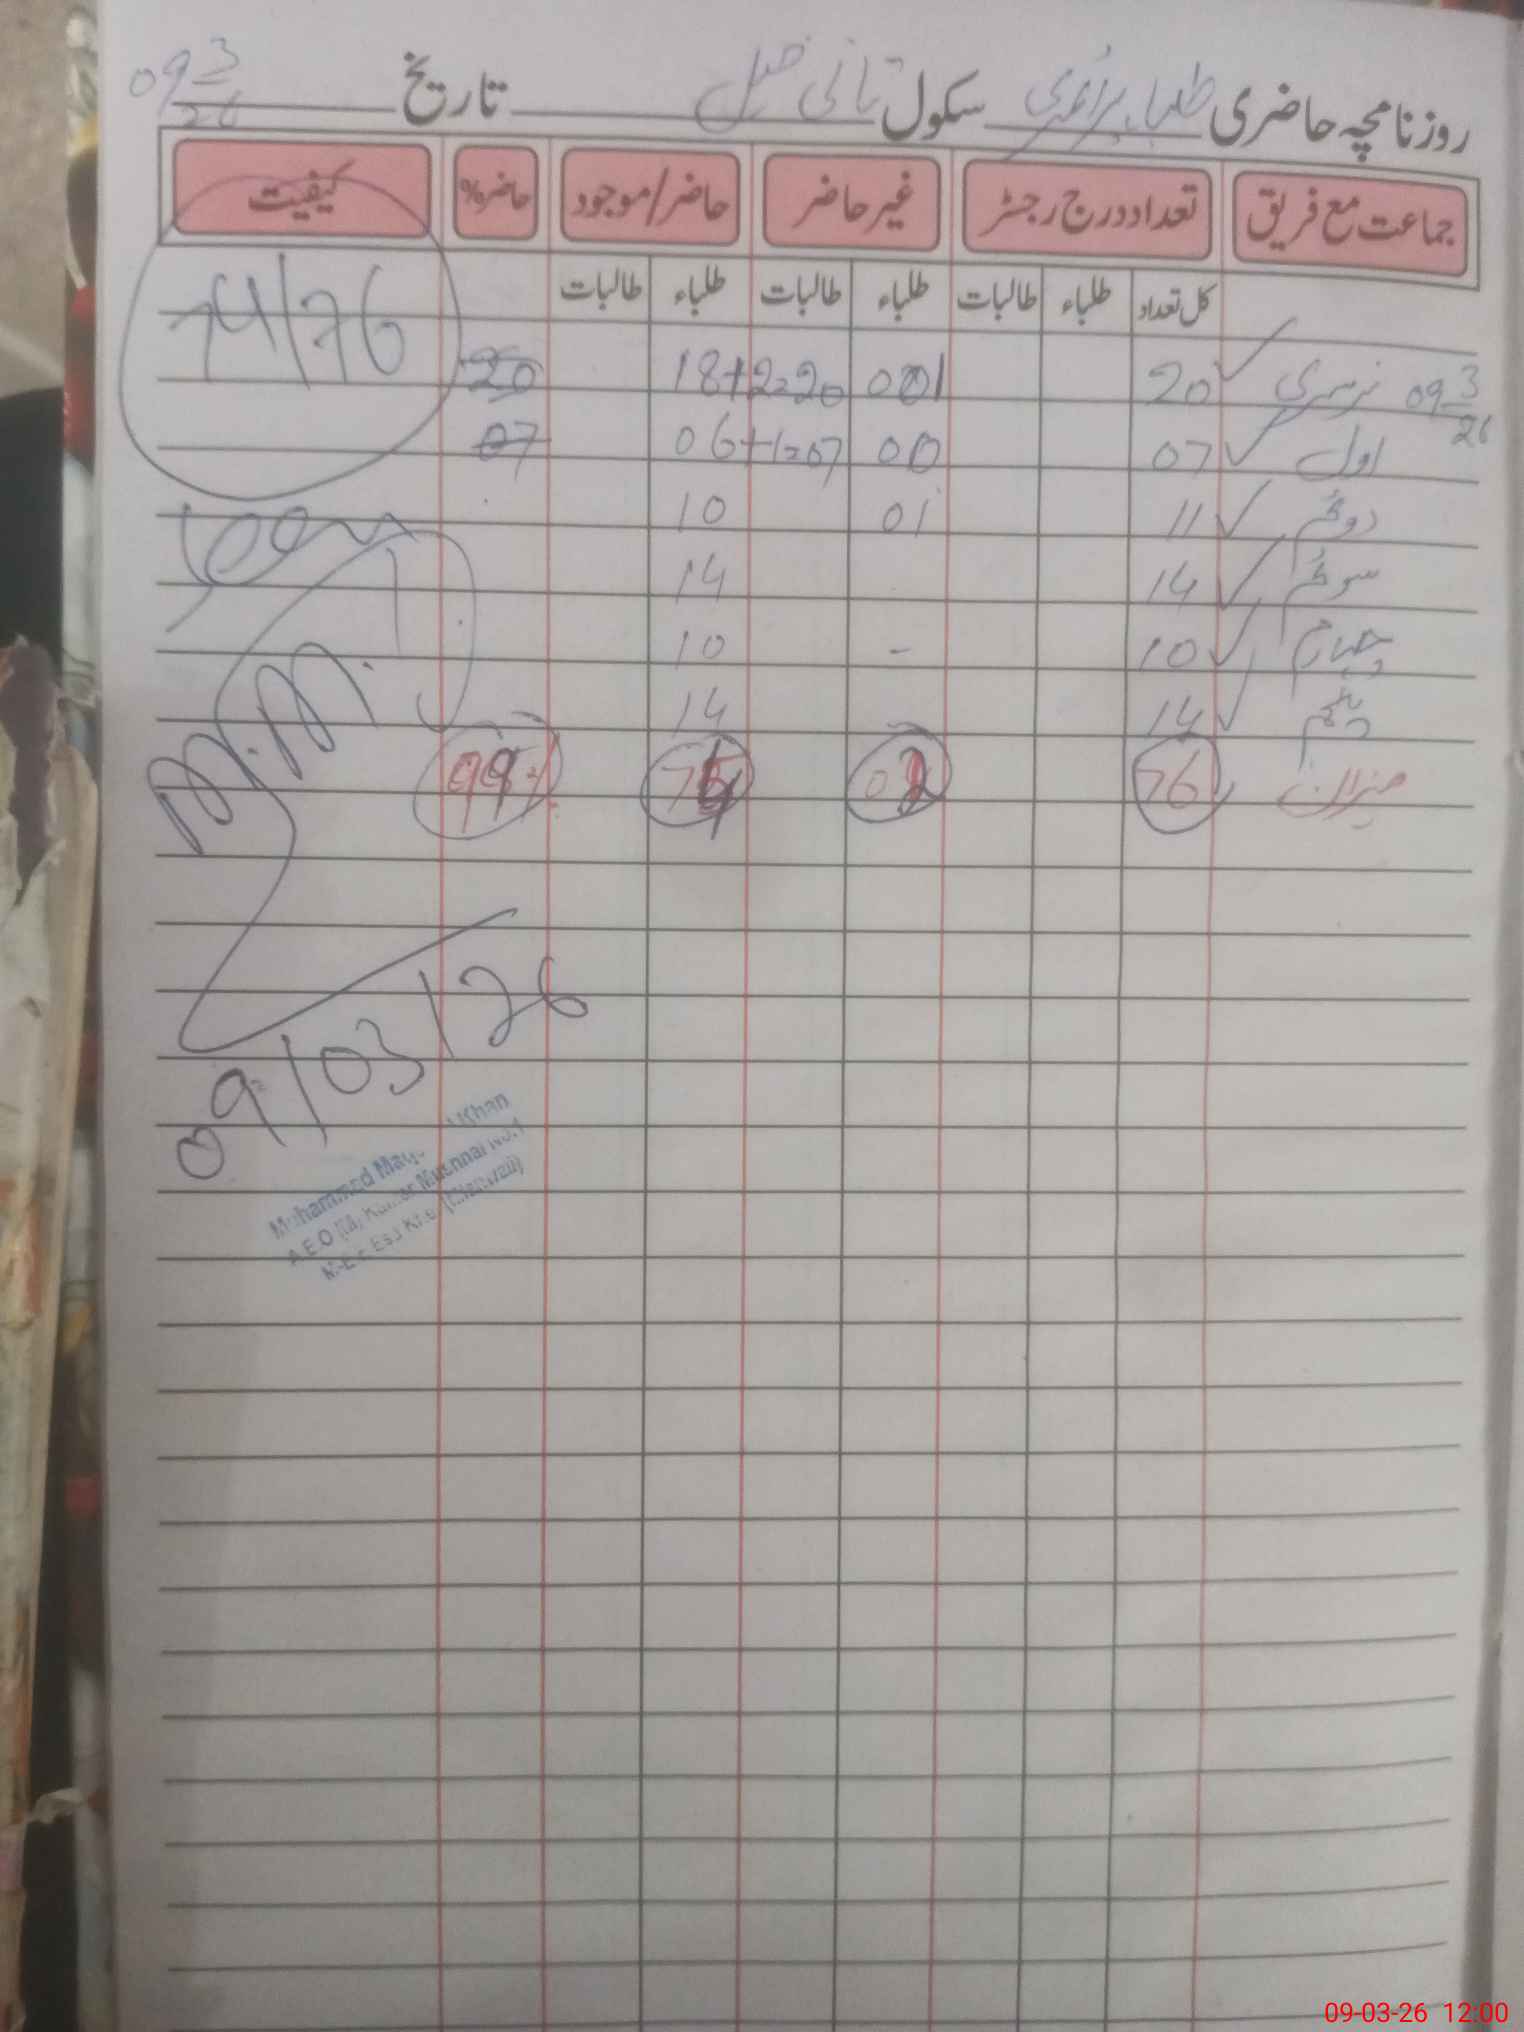 روزنامچہ حاضری طلباء پرائمری سکول تانی خیل تاریخ 09 3/26
جماعت مع فریق تعداد درج رجسٹر غیر حاضر حاضر/موجود حاضر% کیفیت
کل تعداد طلباء طالبات طلباء طالبات طلباء طالبات
74/76
09 3/26 نرسری 20 001 18+2=20 20
اول 07 00 06+1=07 07
دوئم 11 01 10
سوئم 14 14
چہارم 10 - 10
پنجم 14 14
میزان 76 02 74
09/03/26
Mohammed Khan
A.E.O
09-03-26 12:00